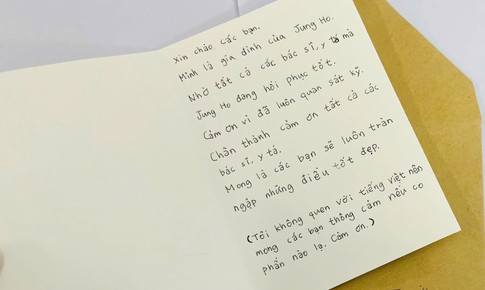 Xin chào các bạn.
Mình là gia đình của Jung Ho.
Nhờ tất cả các bác sĩ, y tá mà
Jung Ho đang hồi phục tốt.
Cảm ơn vì đã luôn quan sát kỹ.
Chân thành cảm ơn tất cả các
bác sĩ, y tá.
Mong là các bạn sẽ luôn tràn
ngập những điều tốt đẹp.
(Tôi không quen với tiếng việt nên
mong các bạn thông cảm nếu có
phần nào lạ. Cảm ơn.)